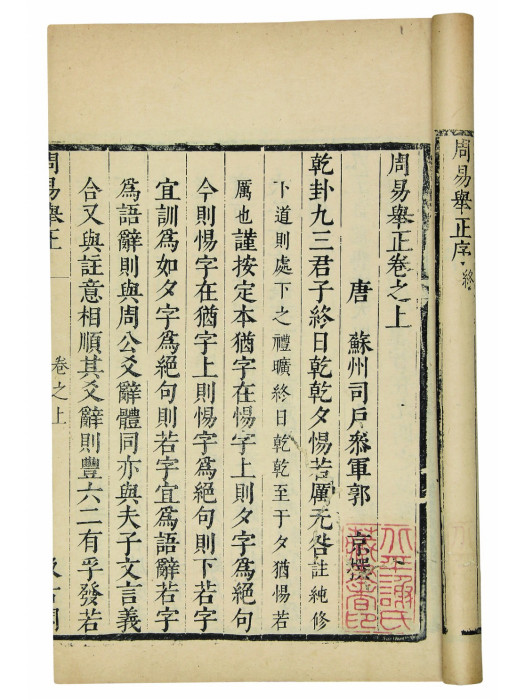 周易舉正序終
周易舉正卷之上
唐 蘇州司戶叅軍郭 京撰
乾卦九三君子終日乾乾夕惕若厲无咎註純修
下道則處下之禮曠終日乾乾至于夕猶惕若
厲也謹按定本猶字在惕字上則夕字爲絕句
今則惕字在猶字上則惕字爲絕句則下若字
宜訓爲如夕字爲絕句則若字宜爲語辭若字
爲語辭則與周公爻辭體同亦與夫子文言義
合又與註意相順其爻辭則豐六二有孚發若
周易舉正 卷之上 汲古閣